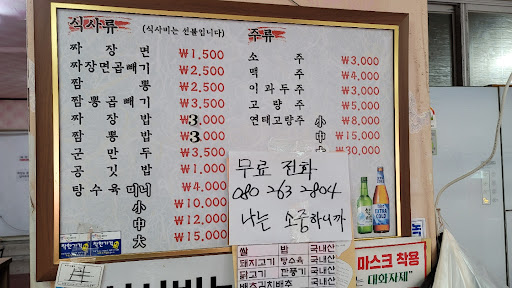 식사류 (식사비는 선불입니다)
짜장면 ₩1,500
짜장면곱빼기 ₩2,500
짬뽕 ₩2,500
짬뽕곱빼기 ₩3,500
짜장밥 ₩3,000
짬뽕밥 ₩3,000
군만두 ₩3,500
공깃밥 ₩1,000
탕수육 미니 ₩4,000
小 ₩10,000
中 ₩12,000
大 ₩15,000
주류
소주 ₩3,000
맥주 ₩4,000
이과두주 ₩3,000
고량주 ₩5,000
연태고량주 小 ₩8,000
中 ₩15,000
大 ₩30,000
무료 전화
080 263 2804
나는 소중하니까
쌀 밥 국내산
돼지고기 탕수육 국내산
닭고기 깐풍기 국내산
배추김치 배추 국내산
마스크 착용
는 대화자제